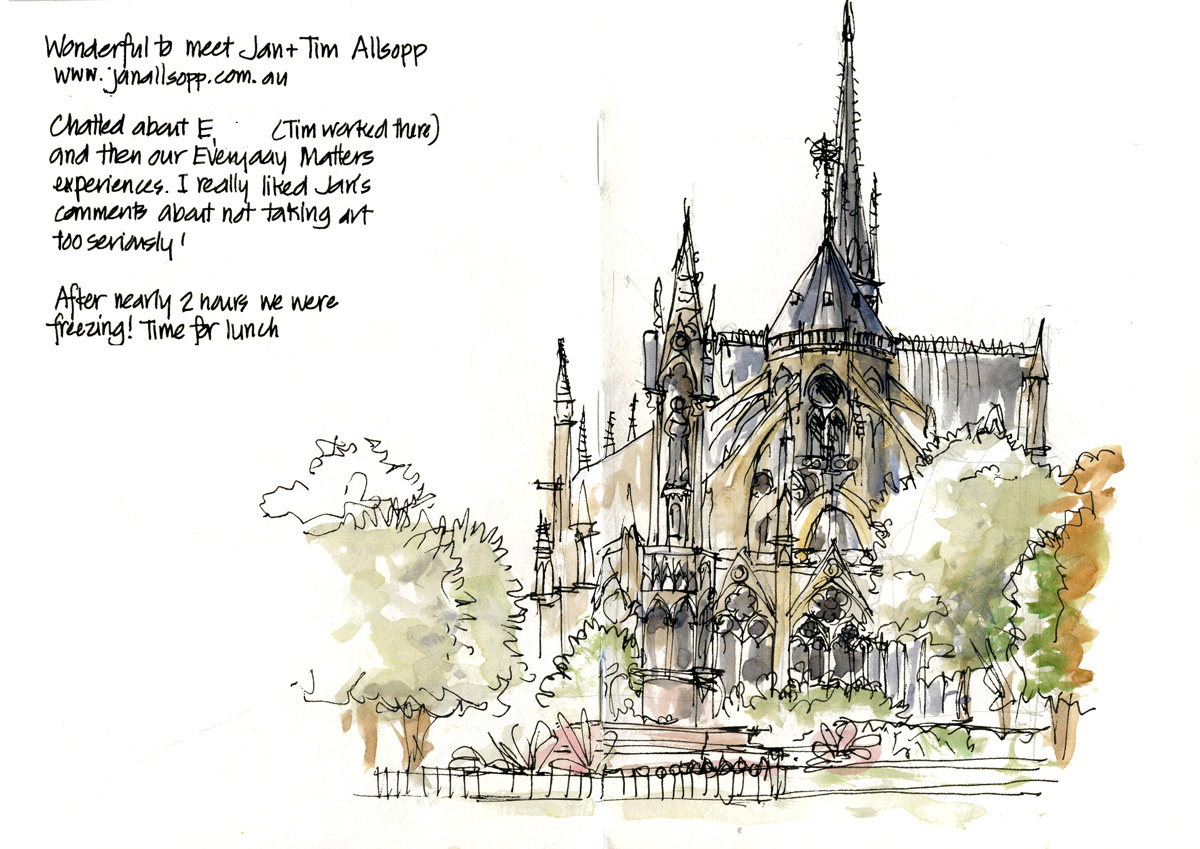 Wonderful to meet Jan + Tim Allsopp
www.janallsopp.com.au
Chatted about E. (Tim worked there)
and then our Everyday Matters
experiences. I really liked Jan's
comments about not taking art
too seriously!
After nearly 2 hours we were
freezing! Time for lunch